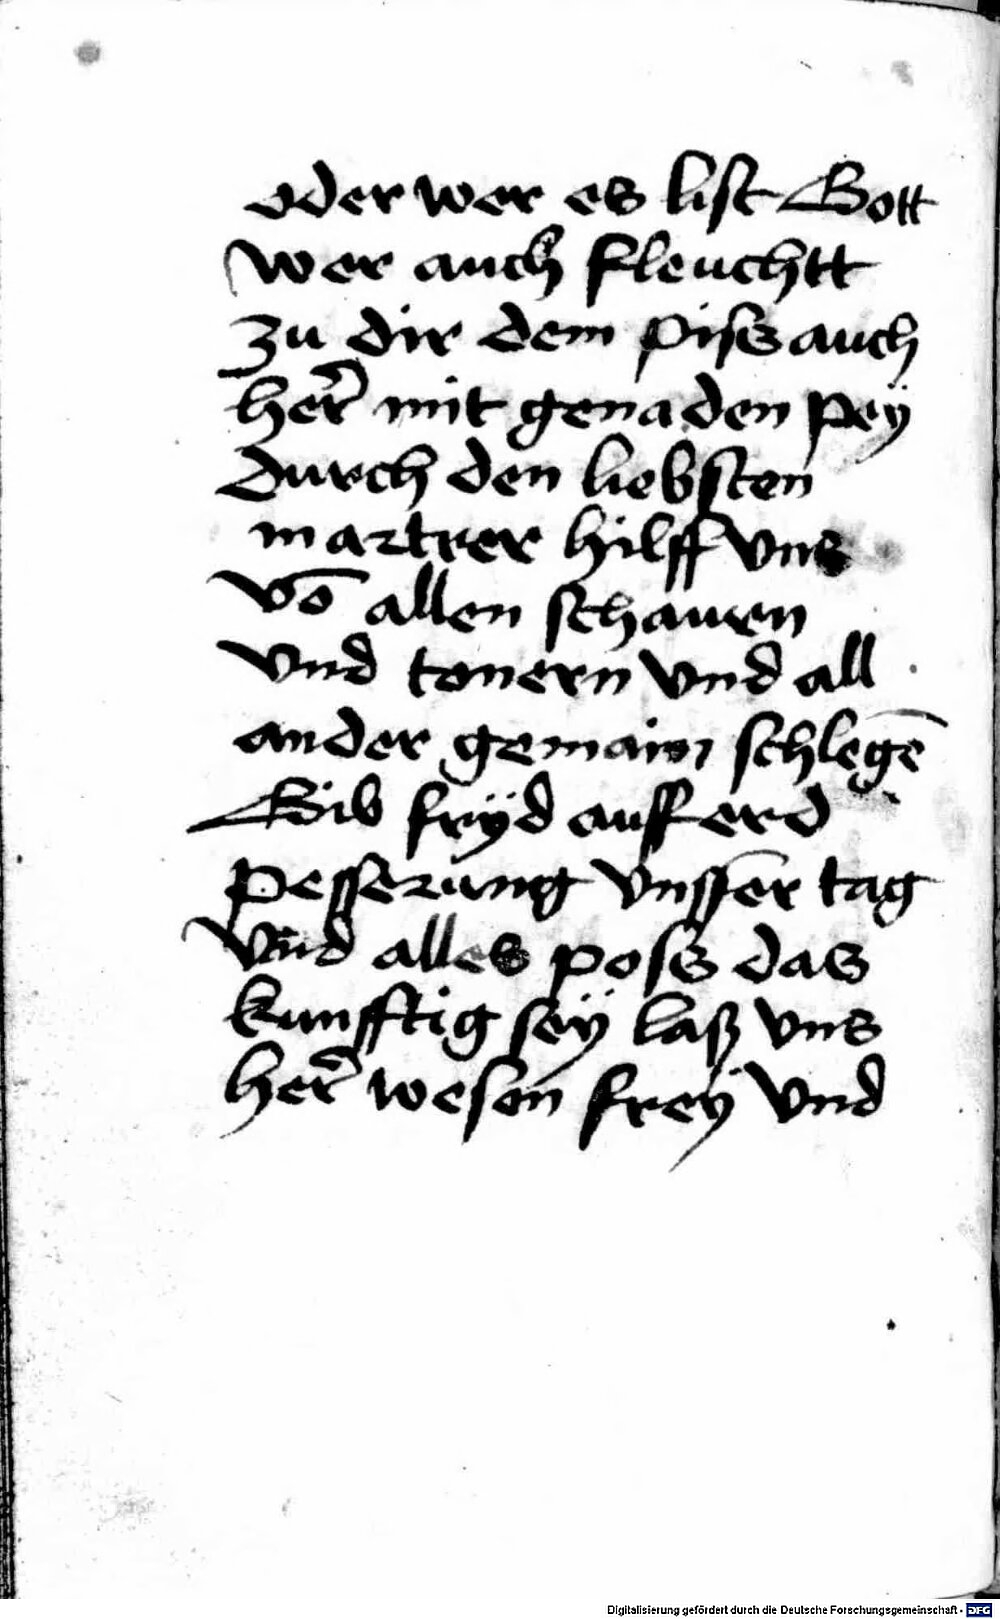 oder wer es list Gott
wer auch fleuchtt
zu dir dem piss auch
her̃ mit genaden peÿ
durch den liebsten
martrer hilff vns
vō allen schauren
vnd tonern vnd all
ander gemain schlegē
Gib frÿd auff erd
pesserung vnsser tag
vnd alles poss das
kunfftig seÿ laß vns
her̃ wesen freÿ vnd
Digitalisierung gefördert durch die Deutsche Forschungsgemeinschaft - DFG